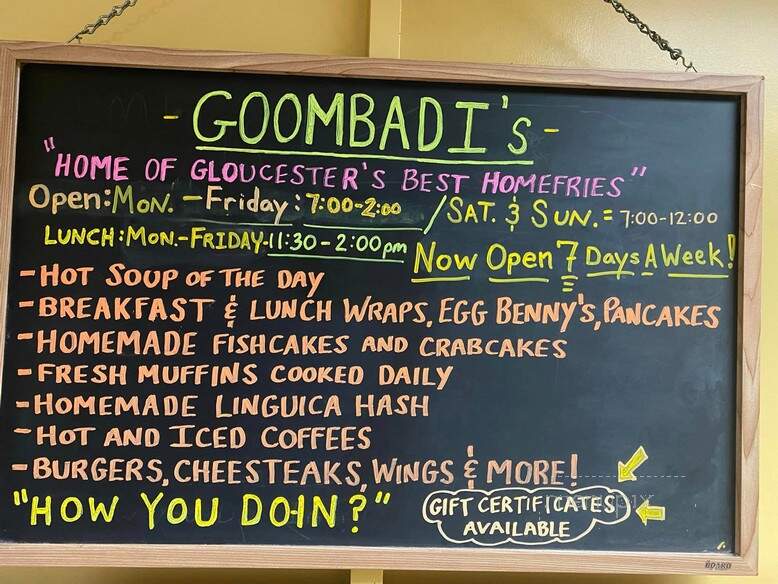 - GOOMBADI's -
"HOME OF GLOUCESTER'S BEST HOMEFRIES"
Open: MON. - Friday: 7:00-2:00 / SAT. & SUN. = 7:00-12:00
LUNCH: MON.-FRIDAY-11:30-2:00pm Now Open 7 Days A Week!
- HOT SOUP OF THE DAY
- BREAKFAST & LUNCH WRAPS, EGG BENNY'S, PANCAKES
- HOMEMADE FISHCAKES AND CRABCAKES
- FRESH MUFFINS COOKED DAILY
- HOMEMADE LINGUICA HASH
- HOT AND ICED COFFEES
- BURGERS, CHEESTEAKS, WINGS & MORE!
"HOW YOU DO-IN?" GIFT CERTIFICATES
AVAILABLE
BOARD